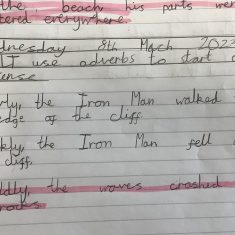 the, beach his parts wer
tered everywhere.
dnesday 8th Mach 2023
I use adverbs to start a
tense
rly, the Iron Man walked
edge of the cliff.
kly, the Iron Man fell
cliff.
ldly, the waves crashed
rocks